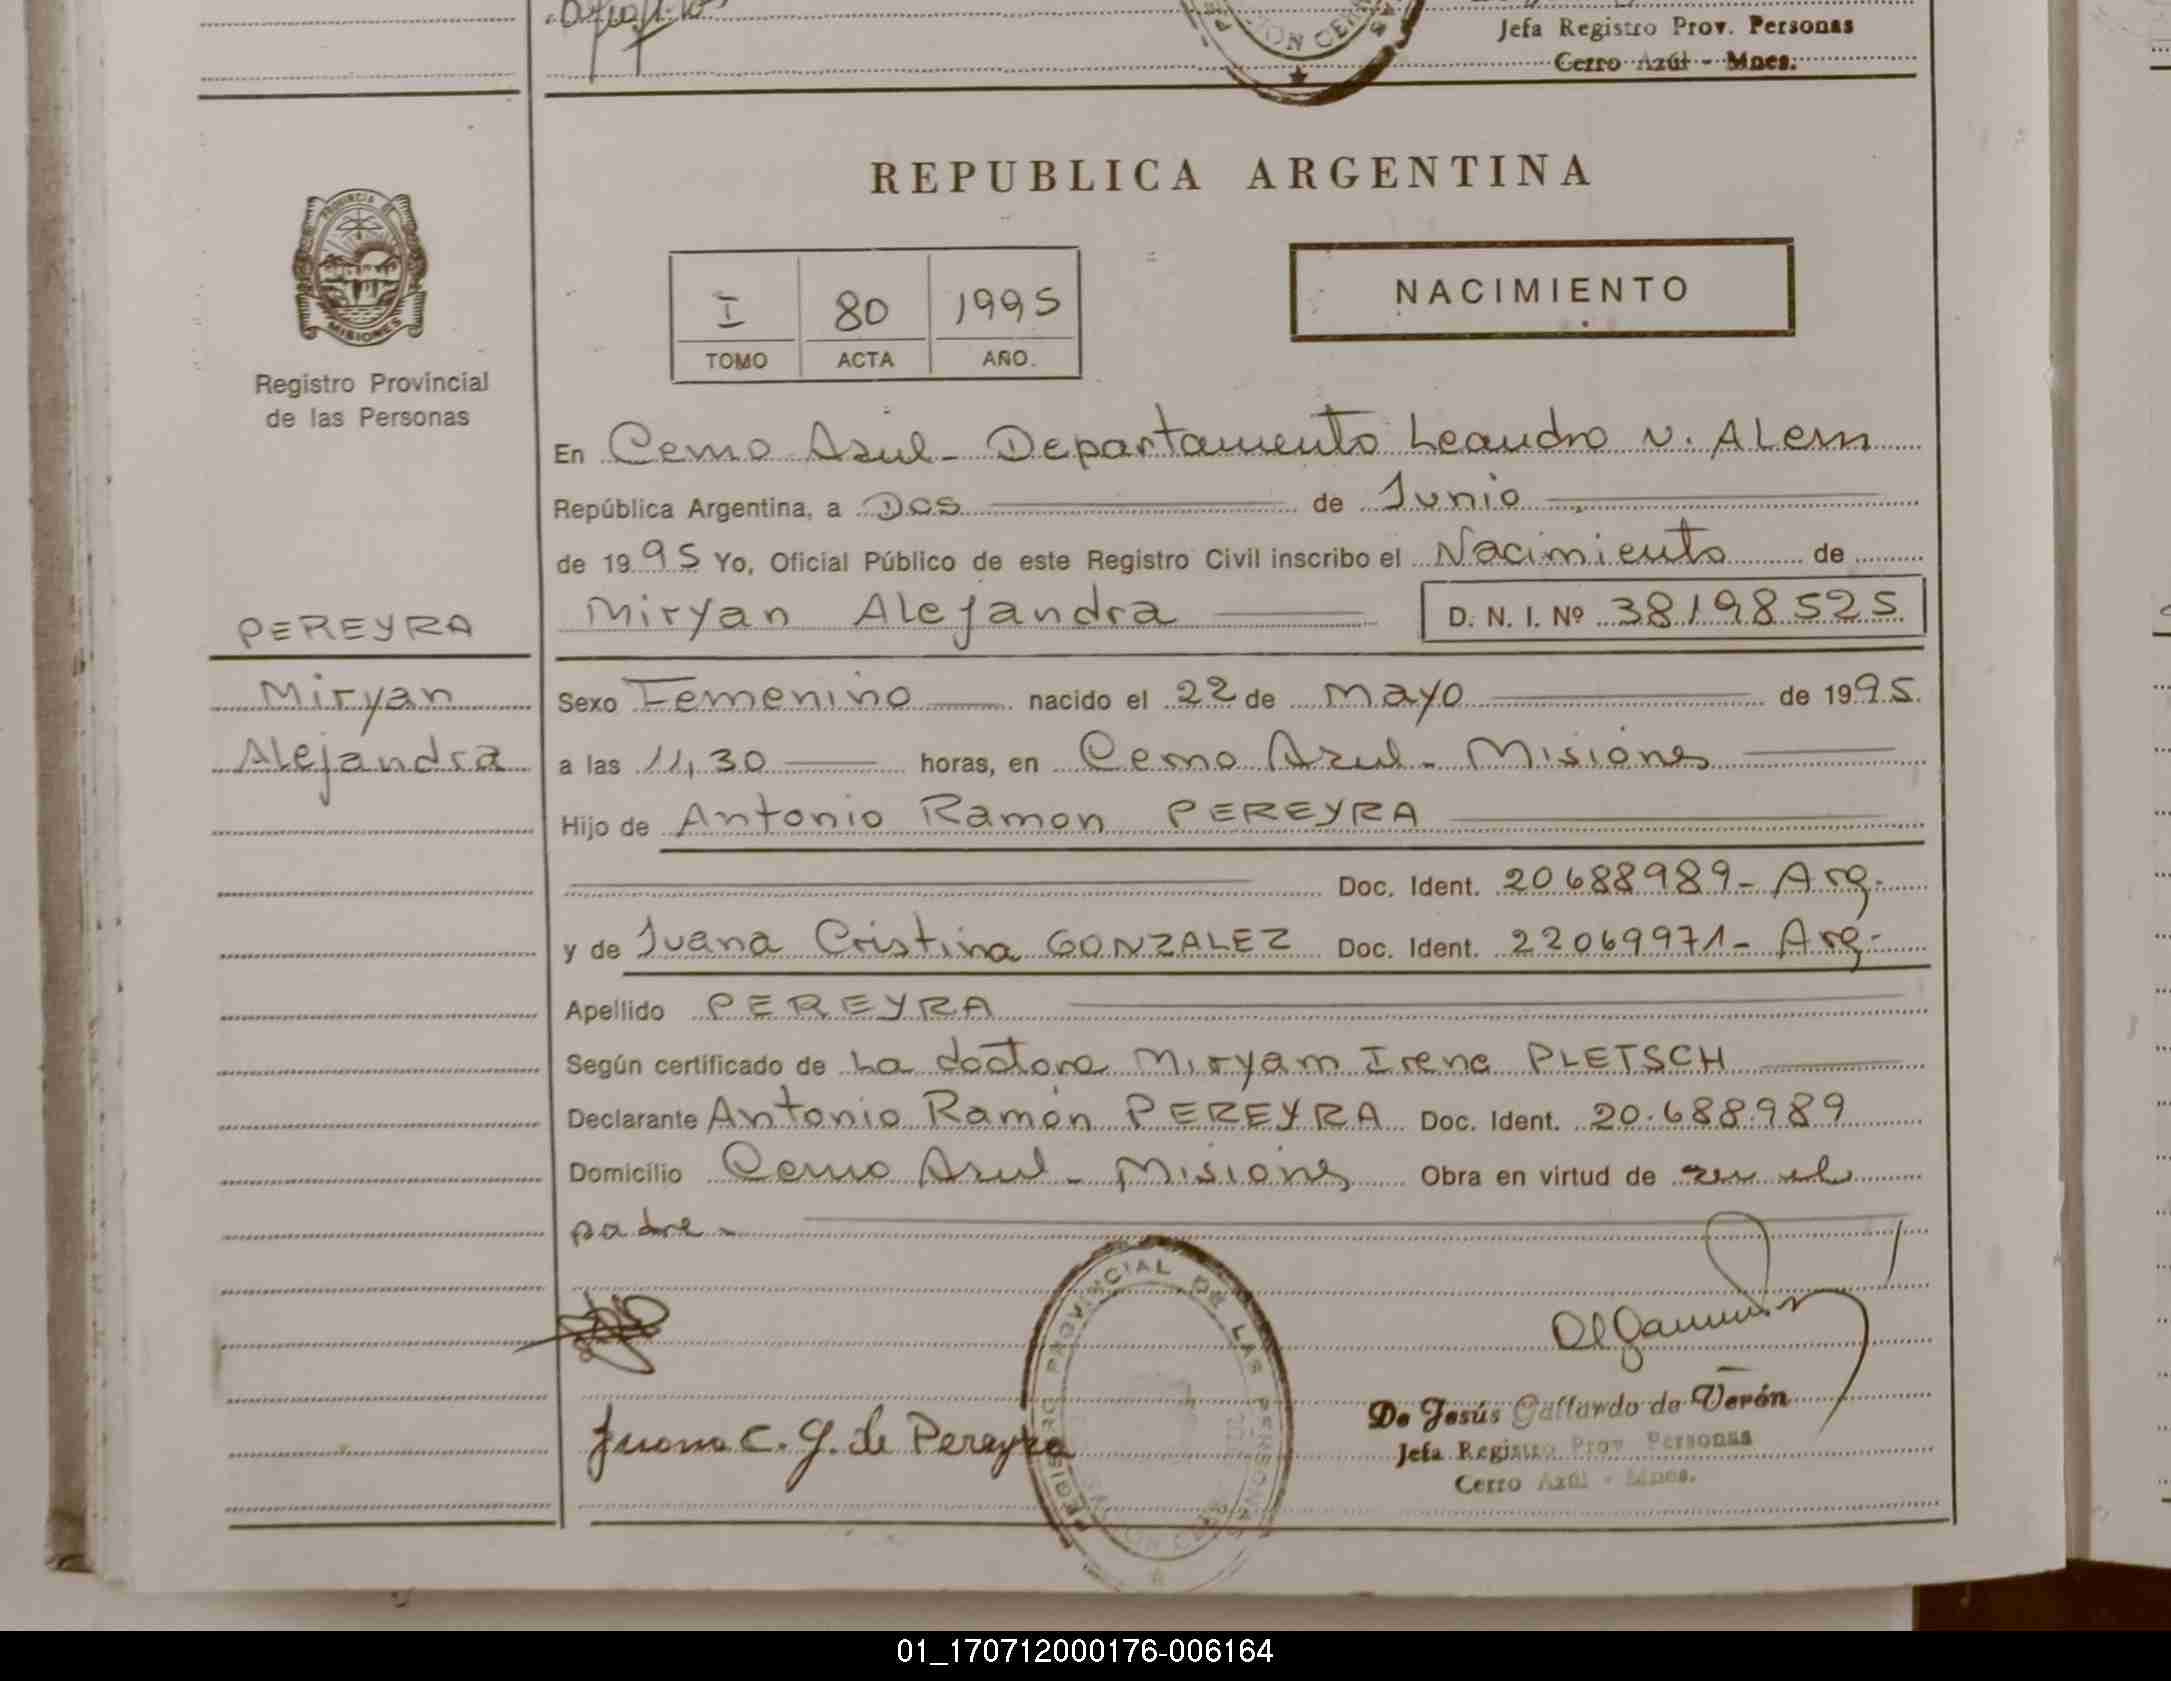 Jefa Registro Prov. Personas
Cerro Azúl - Mnes.
REPUBLICA ARGENTINA
PROVINCIA DE
MISIONES
Registro Provincial
de las Personas
I 80 1995
TOMO ACTA AÑO.
NACIMIENTO
En Cerro Azul - Departamento Leandro N. ALem
República Argentina, a Dos de Junio
de 1995 Yo, Oficial Público de este Registro Civil inscribo el Nacimiento de
Miryan Alejandra D. N. I. Nº 38198525
PEREYRA
Miryan
Alejandra
Sexo Femenino nacido el 22 de Mayo de 1995.
a las 11,30 horas, en Cerro Azul - Misiones
Hijo de Antonio Ramon PEREYRA
Doc. Ident. 20688989 - Arg.-
y de Juana Cristina GONZALEZ Doc. Ident. 22069971 - Arg.-
Apellido PEREYRA
Según certificado de La doctora Miryam Irene PLETSCH
Declarante Antonio Ramón PEREYRA Doc. Ident. 20.688.989
Domicilio Cerro Azul - Misiones Obra en virtud de ser el
padre -
REGISTRO PROVINCIAL DE LAS PERSONAS
Juana C. G. de Pereyra
De Jesús Gallardo de Verón
Jefa Registro Prov. Personas
Cerro Azúl - Mnes.
01_170712000176-006164